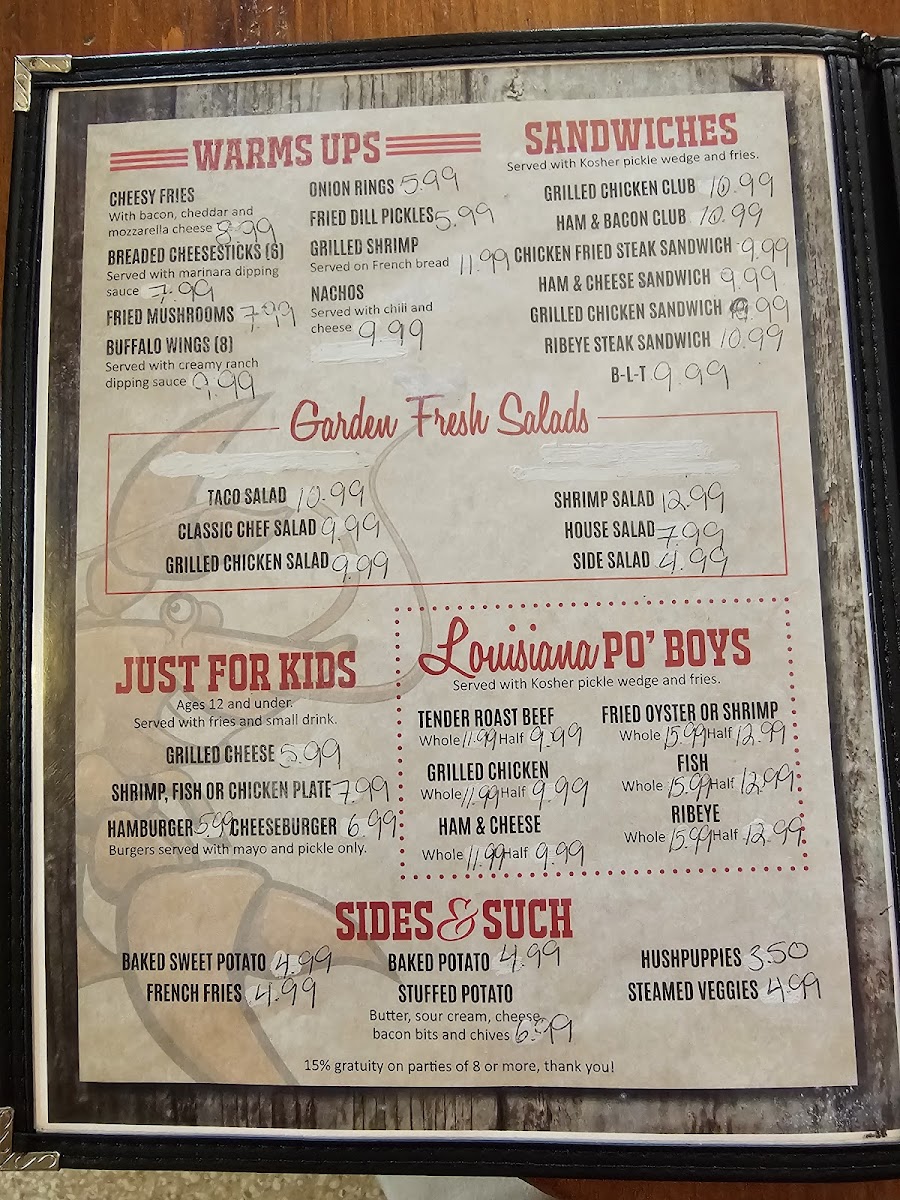 WARMS UPS
CHEESY FRIES
With bacon, cheddar and
mozzarella cheese 8.99
BREADED CHEESESTICKS (6)
Served with marinara dipping
sauce 7.99
FRIED MUSHROOMS 7.99
BUFFALO WINGS (8)
Served with creamy ranch
dipping sauce 9.99
ONION RINGS 5.99
FRIED DILL PICKLES 5.99
GRILLED SHRIMP
Served on French bread 11.99
NACHOS
Served with chili and
cheese 9.99
SANDWICHES
Served with Kosher pickle wedge and fries.
GRILLED CHICKEN CLUB 10.99
HAM & BACON CLUB 10.99
CHICKEN FRIED STEAK SANDWICH 9.99
HAM & CHEESE SANDWICH 9.99
GRILLED CHICKEN SANDWICH .99
RIBEYE STEAK SANDWICH 10.99
B-L-T 9.99
Garden Fresh Salads
TACO SALAD 10.99
CLASSIC CHEF SALAD 9.99
GRILLED CHICKEN SALAD 9.99
SHRIMP SALAD 12.99
HOUSE SALAD 7.99
SIDE SALAD 4.99
JUST FOR KIDS
Ages 12 and under.
Served with fries and small drink.
GRILLED CHEESE 5.99
SHRIMP, FISH OR CHICKEN PLATE 7.99
HAMBURGER 5.99 CHEESEBURGER 6.99
Burgers served with mayo and pickle only.
Louisiana PO' BOYS
Served with Kosher pickle wedge and fries.
TENDER ROAST BEEF
Whole 11.99 Half 9.99
GRILLED CHICKEN
Whole 11.99 Half 9.99
HAM & CHEESE
Whole 11.99 Half 9.99
FRIED OYSTER OR SHRIMP
Whole 15.99 Half 12.99
FISH
Whole 15.99 Half 12.99
RIBEYE
Whole 15.99 Half 12.99
SIDES & SUCH
BAKED SWEET POTATO 4.99
FRENCH FRIES 4.99
BAKED POTATO 4.99
STUFFED POTATO
Butter, sour cream, cheese,
bacon bits and chives 6.99
HUSHPUPPIES 3.50
STEAMED VEGGIES 4.99
15% gratuity on parties of 8 or more, thank you!